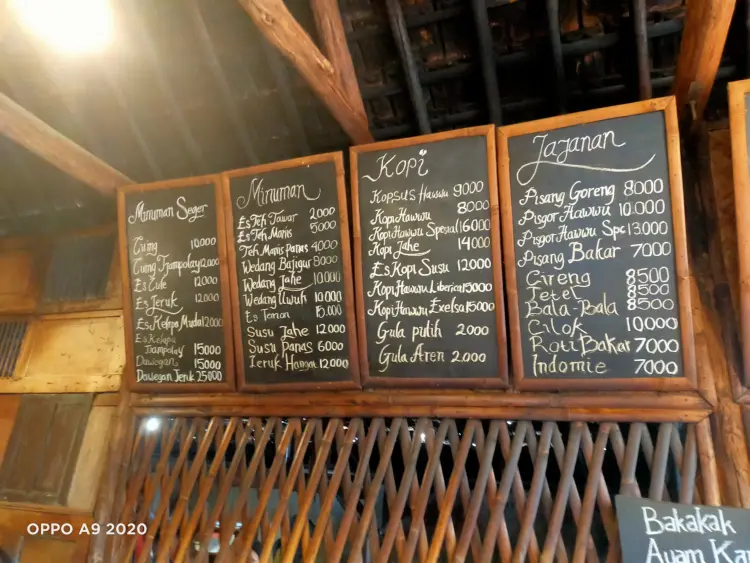 Minuman Seger
Cuing 10.000
Cuing Trampolay 12.000
Es Cue 12.000
Es Jeruk 12.000
Es Kelapa Muda 12.000
Es Kelapa
Trampolay 15000
Dawegan 15000
Dawegan Jeruk 25000
Minuman
Es Teh Tawar 2000
Es Teh Manis 5000
Teh Manis Panas 4000
Wedang Bajigur 8000
Wedang Jahe 10.000
Wedang Uwuh 10.000
Es Temon 15.000
Susu Jahe 12.000
Susu Panas 6000
Jeruk Hangat 12.000
Kopi
Kopsus Hawwu 9000
Kopi Hawwu 8000
Kopi Hawwu Spesial 16000
Kopi Jahe 14000
Es Kopi Susu 12.000
Kopi Hawwu Liberica 15000
Kopi Hawwu Exelsa 15000
Gula putih 2000
Gula Aren 2.000
Jajanan
Pisang Goreng 8000
Pisgor Hawwu 10.000
Pisgor Hawwu Spc 13.000
Pisang Bakar 7000
Cireng 8500
Tetel 8500
Bala-Bala 8500
Cilok 10000
Roti Bakar 7000
Indomie 7000
Bakakak
Ayam Ka
OPPO A9 2020